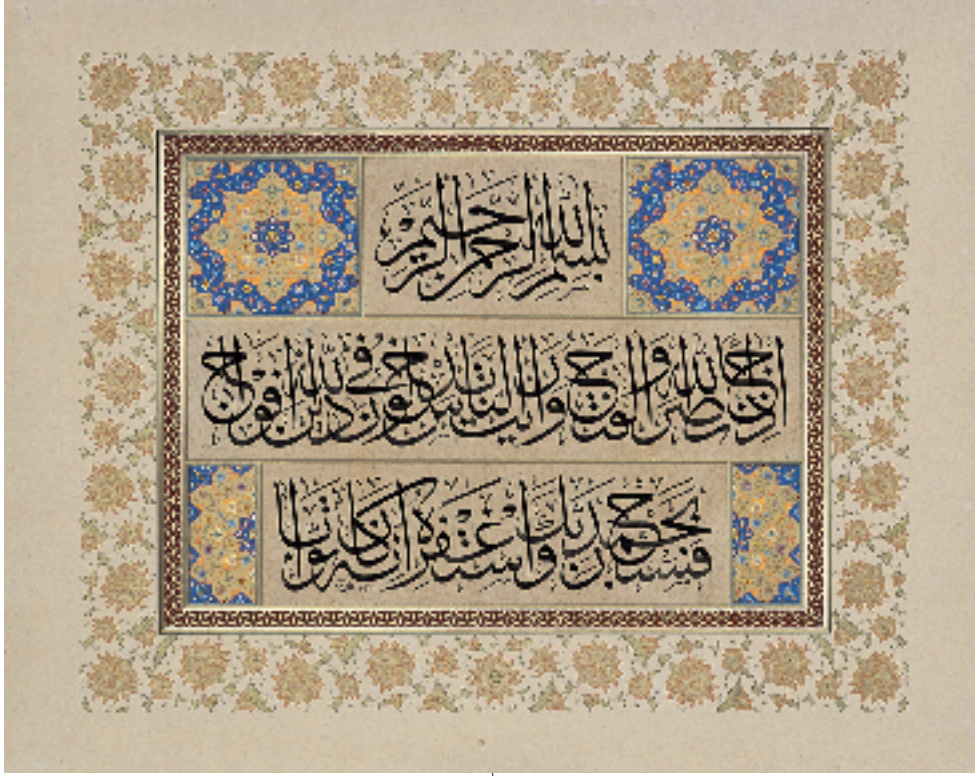 بسم الله الرحمن الرحيم
إذا جاء نصر الله والفتح ورأيت الناس يدخلون في دين الله أفواجا
فسبح بحمد ربك واستغفره إنه كان توابا